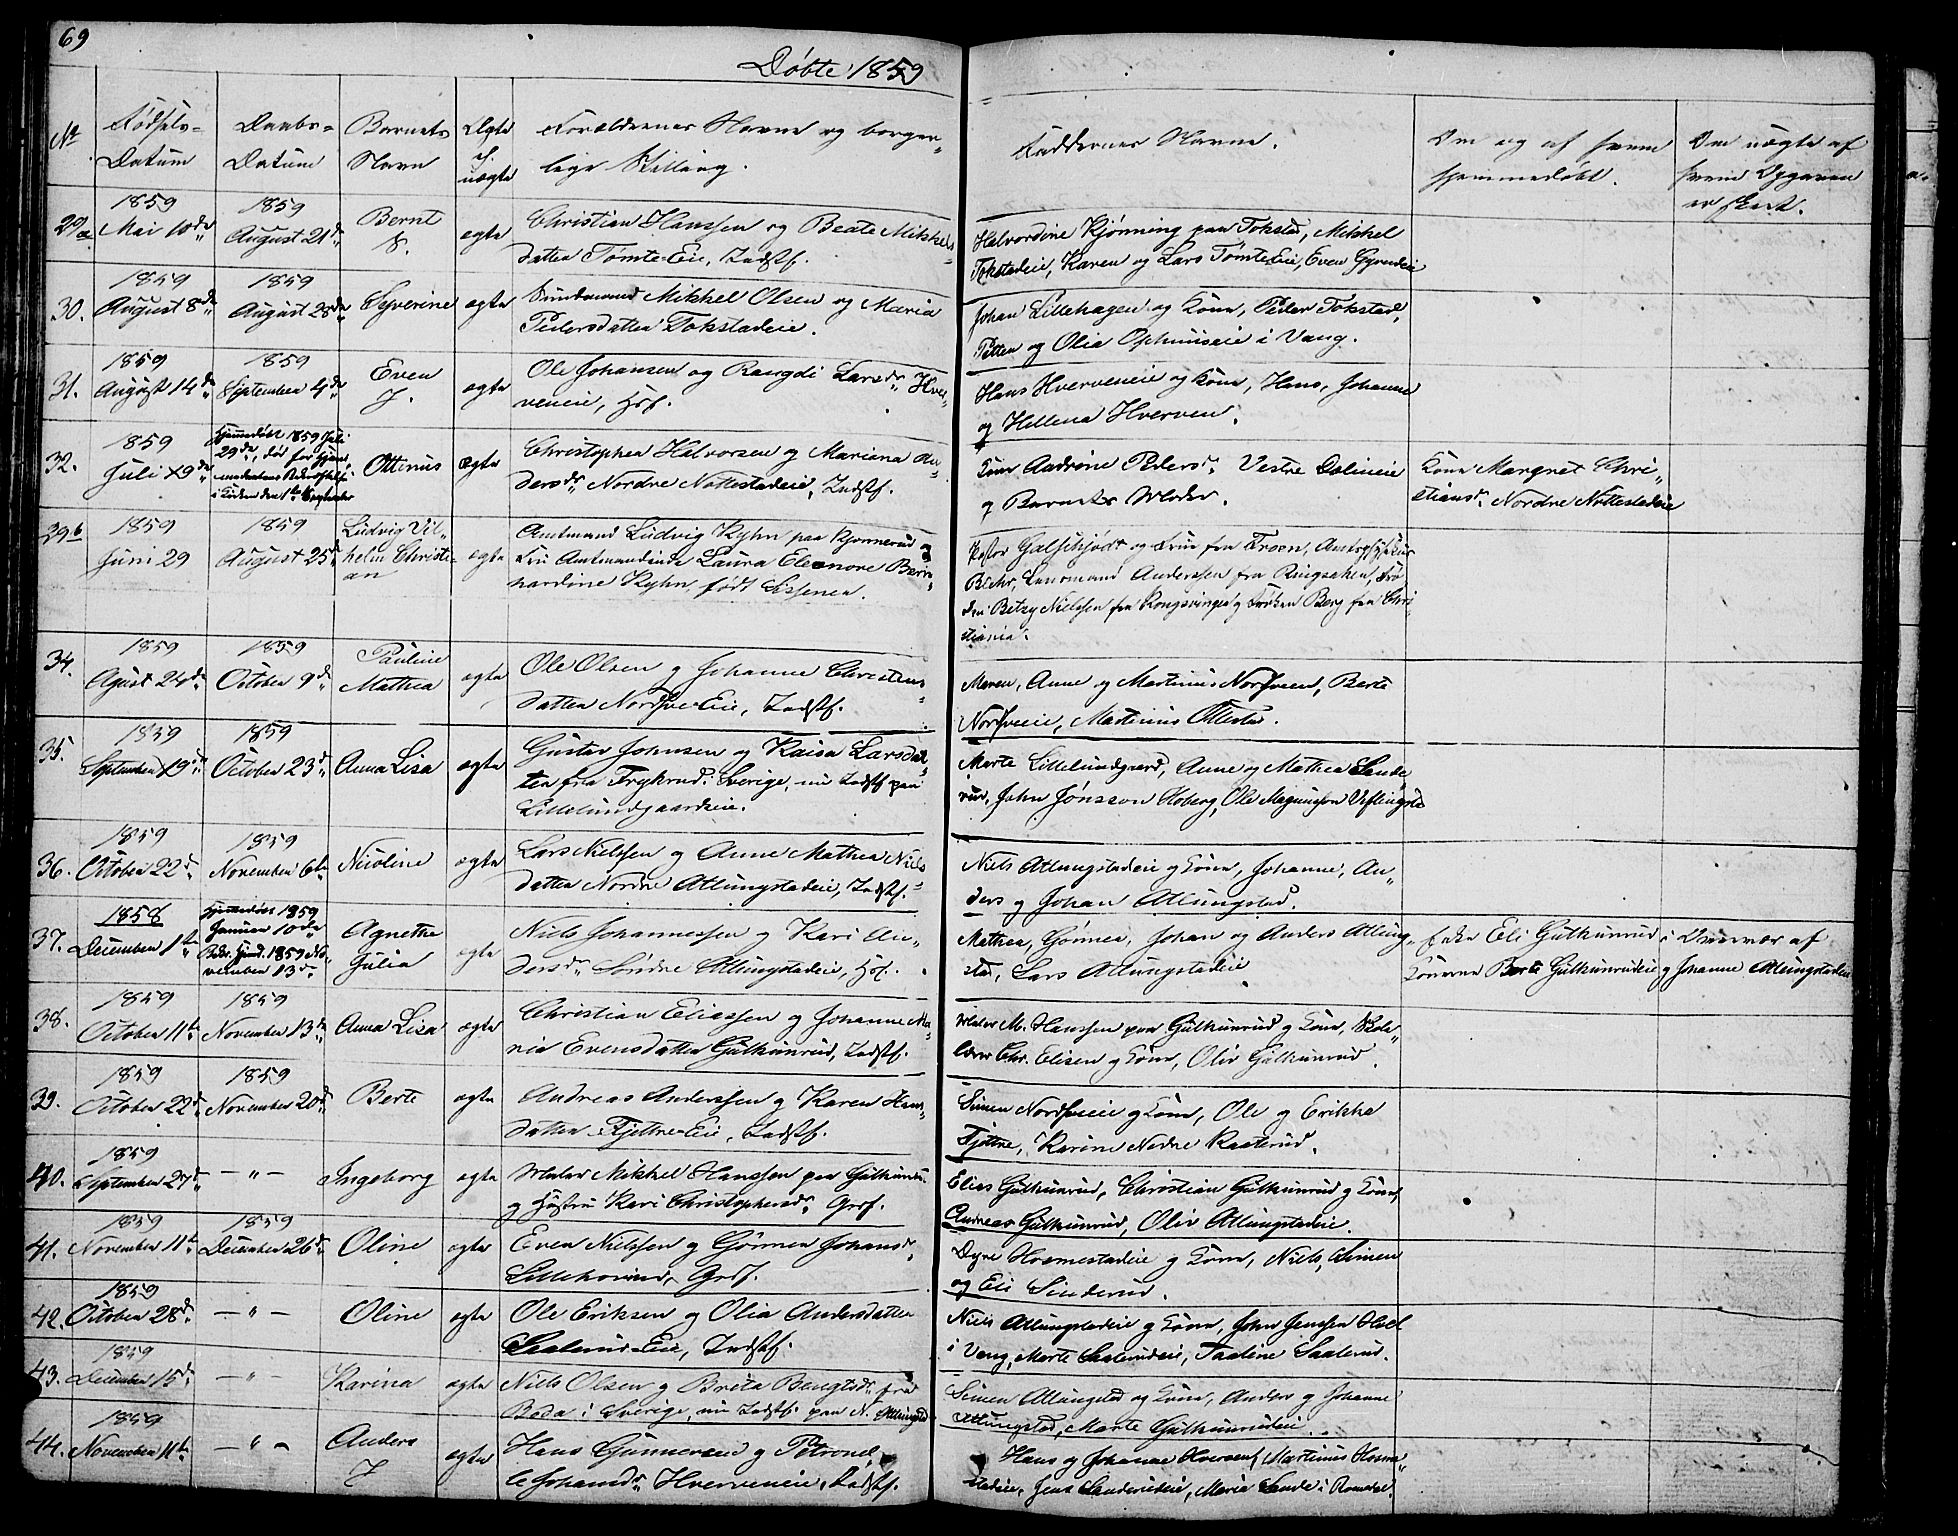 69
Döbte 1859
No
Födsels-
Datum
Daabs-
Datum
Barnets
Navn
Ægte
el.
uægte
Forældrenes Navne og borger-
lige Stilling.
Faddernes Navne.
Om og af hvem
hjemmedöbt.
Om uægte af
hvem Opgaven
er skeet.
29a
1859
Mai 10de
1859
August 21de
Bernt
ægte
Christian Hanssen og Beate Mikkels-
datter Tömte-Eie, Indstf.
Halvordine Kjønning paa Tokstad, Mikkel
Tokstadeie, Karen og Lars Tömte-Eie, Even
30.
1859
August 8de
1859
August 28de
Syverine
ægte
Mikkel Olsen og Maria
Pedersdatter Tokstadeie.
Johan Lillehagen og Kone, Peder Tokstad,
Petter og Olia i Vang.
31.
1859
August 14de
1859
September 4de
Even
J.
ægte
Ole Johansen og Rangdi Larsdr. Hver-
veneie, Hsf.
Hans Hverveneie og Kone, Hans, Johanne
og Hellena Hverven.
32.
1859
Juli 29de
Hjemmedöbt 1859 Juli
29de, död for Hjem-
medaabens Bekræftelse
i Kirken den 1ste September
Ottinus
Ægte
Christopher Halvorsen og Mariana An-
dersdr. Nordre Nottestadeie, Indstf.
Kone Andrine Pedersdr. Vestre Dolineie
og Barnets Moder.
Kone Margret Chri-
stiansdr. Nordre Nottestadeie
29b
1859
Juni 29
1859
August 25de
Ludvig Vil-
helm Christi-
an
ægte
Amtmand Ludvig Kyhn paa Kjonnerud og
Fru Amtmandinde Laura Eleonore Bern-
hardine Kyhn, födt Sissener.
Pastor og Frue fra Froen, Amtsfysikus
Lensmand Anderssen fra Ringsaker, Frö-
ken Betzy Nielssen fra Kongsvinger og Fröken Berg fra Chri-
stiania.
34.
1859
Agust 24de
1859
October 9de
Pauline
Mathea
ægte
Ole Olsen og Johanne Christens-
datter Nordsve-Eie, Indstf.
Maren, Anne og Martinus Nordsveen, Berte
Nordsveeie, Martinus Ottestad.
35.
1859
September 19de
1859
October 23de
Anna Lisa
ægte
Gustav Johnsen og Kaisa Larsdat-
ter fra Frykerud i Sverige, nu Indstf. paa
Lillelundgaardeie.
Marte Lillelundgaard, Anne og Mathea Sande-
rud, John Jönsson Hoberg, Ole Magnusson
36.
1859
October 22de
1859
November 6te
Nicoline
ægte
Lars Nielssen og Anne Mathea Niels-
datter Nordre Atlungstadeie, Indstf.
Niels Atlungstadeie og Kone, Johanne, An-
ders og Johan Atlungstad.
37.
1858
December 1ste
Hjemmedöbt 1859
Januar 10de
1859 No-
vember 13de
Agnethe
Julia
ægte
Niels Johannessen og Kari An-
dersdr. Søndre Atlungstadeie, Hsf.
Mathea, Gönner, Johan og Anders Atlung-
stad, Lars Atlungstadeie
Enke Eli Gulkunrud i Overvær af
Konerne Berte Gulkunrudeie og Johanne Atlungstadeie
38.
1859
October 11te
1859
November 13de
Anna Lisa
ægte
Christian Eliassen og Johanne Ma-
ria Evensdatter Gulkunrud, Indstf.
Maler M. Hanssen paa Gulkunrud og Kone, Skole-
lærer Chr. Elisen og Kone, Oliv Gulkunrud.
39.
1859
October 22de
1859
November 20de
Berte
ægte
Andreas Anderssen og Karen Hans-
datter Fjettre-Eie, Indstf.
Simen Nordsveeie og Kone, Ole og Erikka
Fjettre, Karine Nedre Rasterud.
40.
1859
September 27de
— " —
Ingeborg
ægte
Maler Mikkel Hanssen paa Gulkunrud
og Hustru Kari Christophersdr. Grdf.
Elias Gulkunrud, Christian Gulkunrud og Kone,
Andreas Gulkunrud, Oliv Atlungstadeie.
41.
1859
November 11te
1859
December 26de
Oline
ægte
Even Nielssen og Gönner Johansdr.
Lillehorrud, Grdf.
Dyre Hosmestadeie og Kone, Niels, Simen
og Eli Sinderud.
42.
1859
October 28de
— " —
Oline
ægte
Ole Eriksen og Olia Andersdatter
Saalerud-Eie, Indstf.
Niels Atlungstadeie og Kone, John Jenssen Hoel
i Vang, Marte Saalerudeie, Pauline Saalerud.
43.
1859
December 15de
— " —
Karina
ægte
Niels Olsen og Brita Bengtsdr. fra
Boda i Sverige, nu Indstf. paa N. Atlungstad
Simen Atlungstad og Kone, Anders og Johanne
Atlungstad, Marte Gulkunrudeie.
44.
1859
November 11te
— " —
Anders
J
ægte
Hans Gunnersen og Petronel-
le Johansdr. Hverveneie, Indstf.
Hans og Johanne Hverven, Martinus Hosme-
stadeie, Jens Sanderudeie, Maria Sande i Romedal.